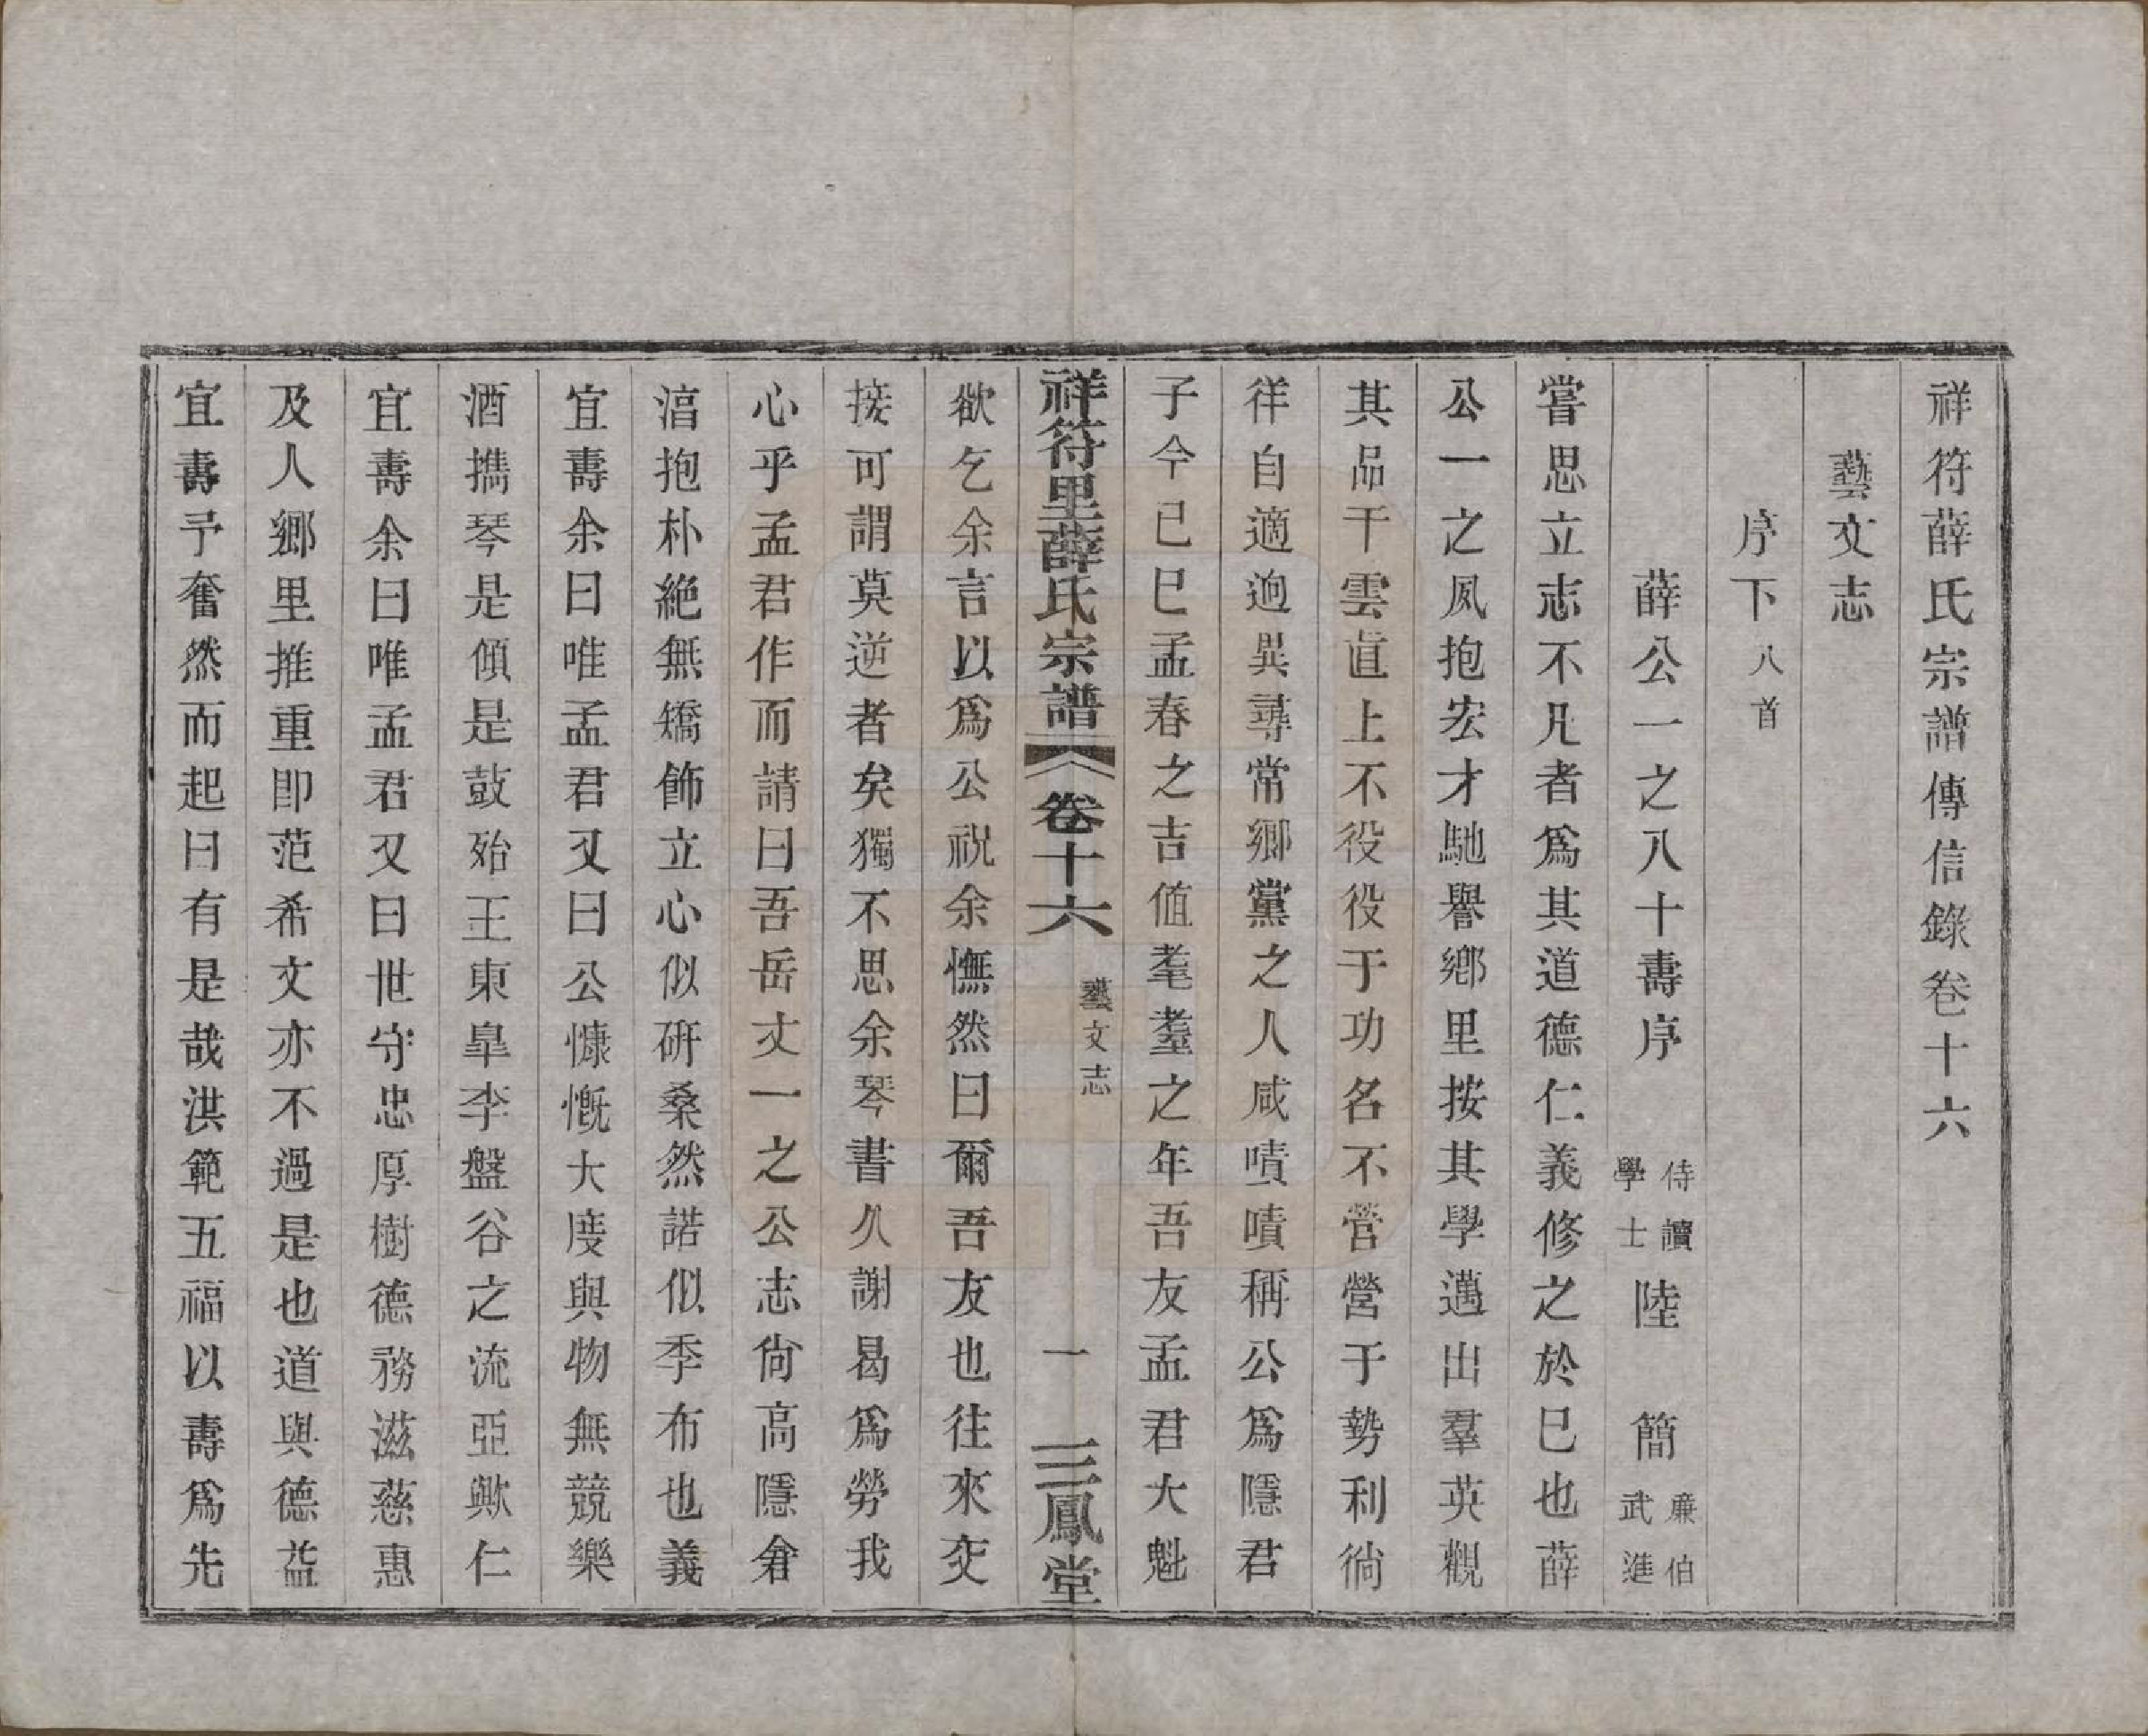 祥符薛氏宗譜傳信錄卷十六
藝文志
序下八首
薛公一之八十壽序 侍讀學士陸 簡廉伯武進
嘗思立志不凡者爲其道德仁義修之於巳也薛
公一之夙抱宏才馳譽鄉里按其學邁出羣英觀
其品干雲直上不役役于功名不營營于勢利徜
徉自適迥異尋常鄉黨之人咸嘖嘖稱公爲隱君
子今己巳孟春之吉值耄耋之年吾友孟君大魁
祥符里薛氏宗譜 卷十六 藝文志 一 三鳳堂
欲乞余言以爲公祝余憮然曰爾吾友也往來交
接可謂莫逆者矣獨不思余琴書久謝曷爲勞我
心乎孟君作而請曰吾岳丈一之公志尙高隱
涽抱朴絶無矯飾立心似硏桑然諾似季布也義
宜壽余曰唯孟君又曰公慷慨大度與物無競樂
酒擕琴是傾是鼓殆王東臯李盤谷之流亞歟仁
宜壽余曰唯孟君又曰世守忠厚樹德務滋慈惠
及人鄉里推重即范希文亦不過是也道與德益
宜壽予奮然而起曰有是哉洪範五福以壽爲先